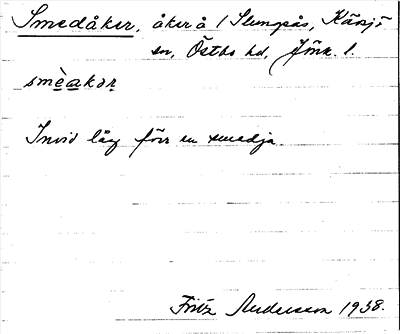 Smedåker, åker å 1 Slungsås, Kärsjö
sn, Östbo hd, Jönk. l.
smèakər
Invid låg förr en smedja.
Fritz Andersson 1938.